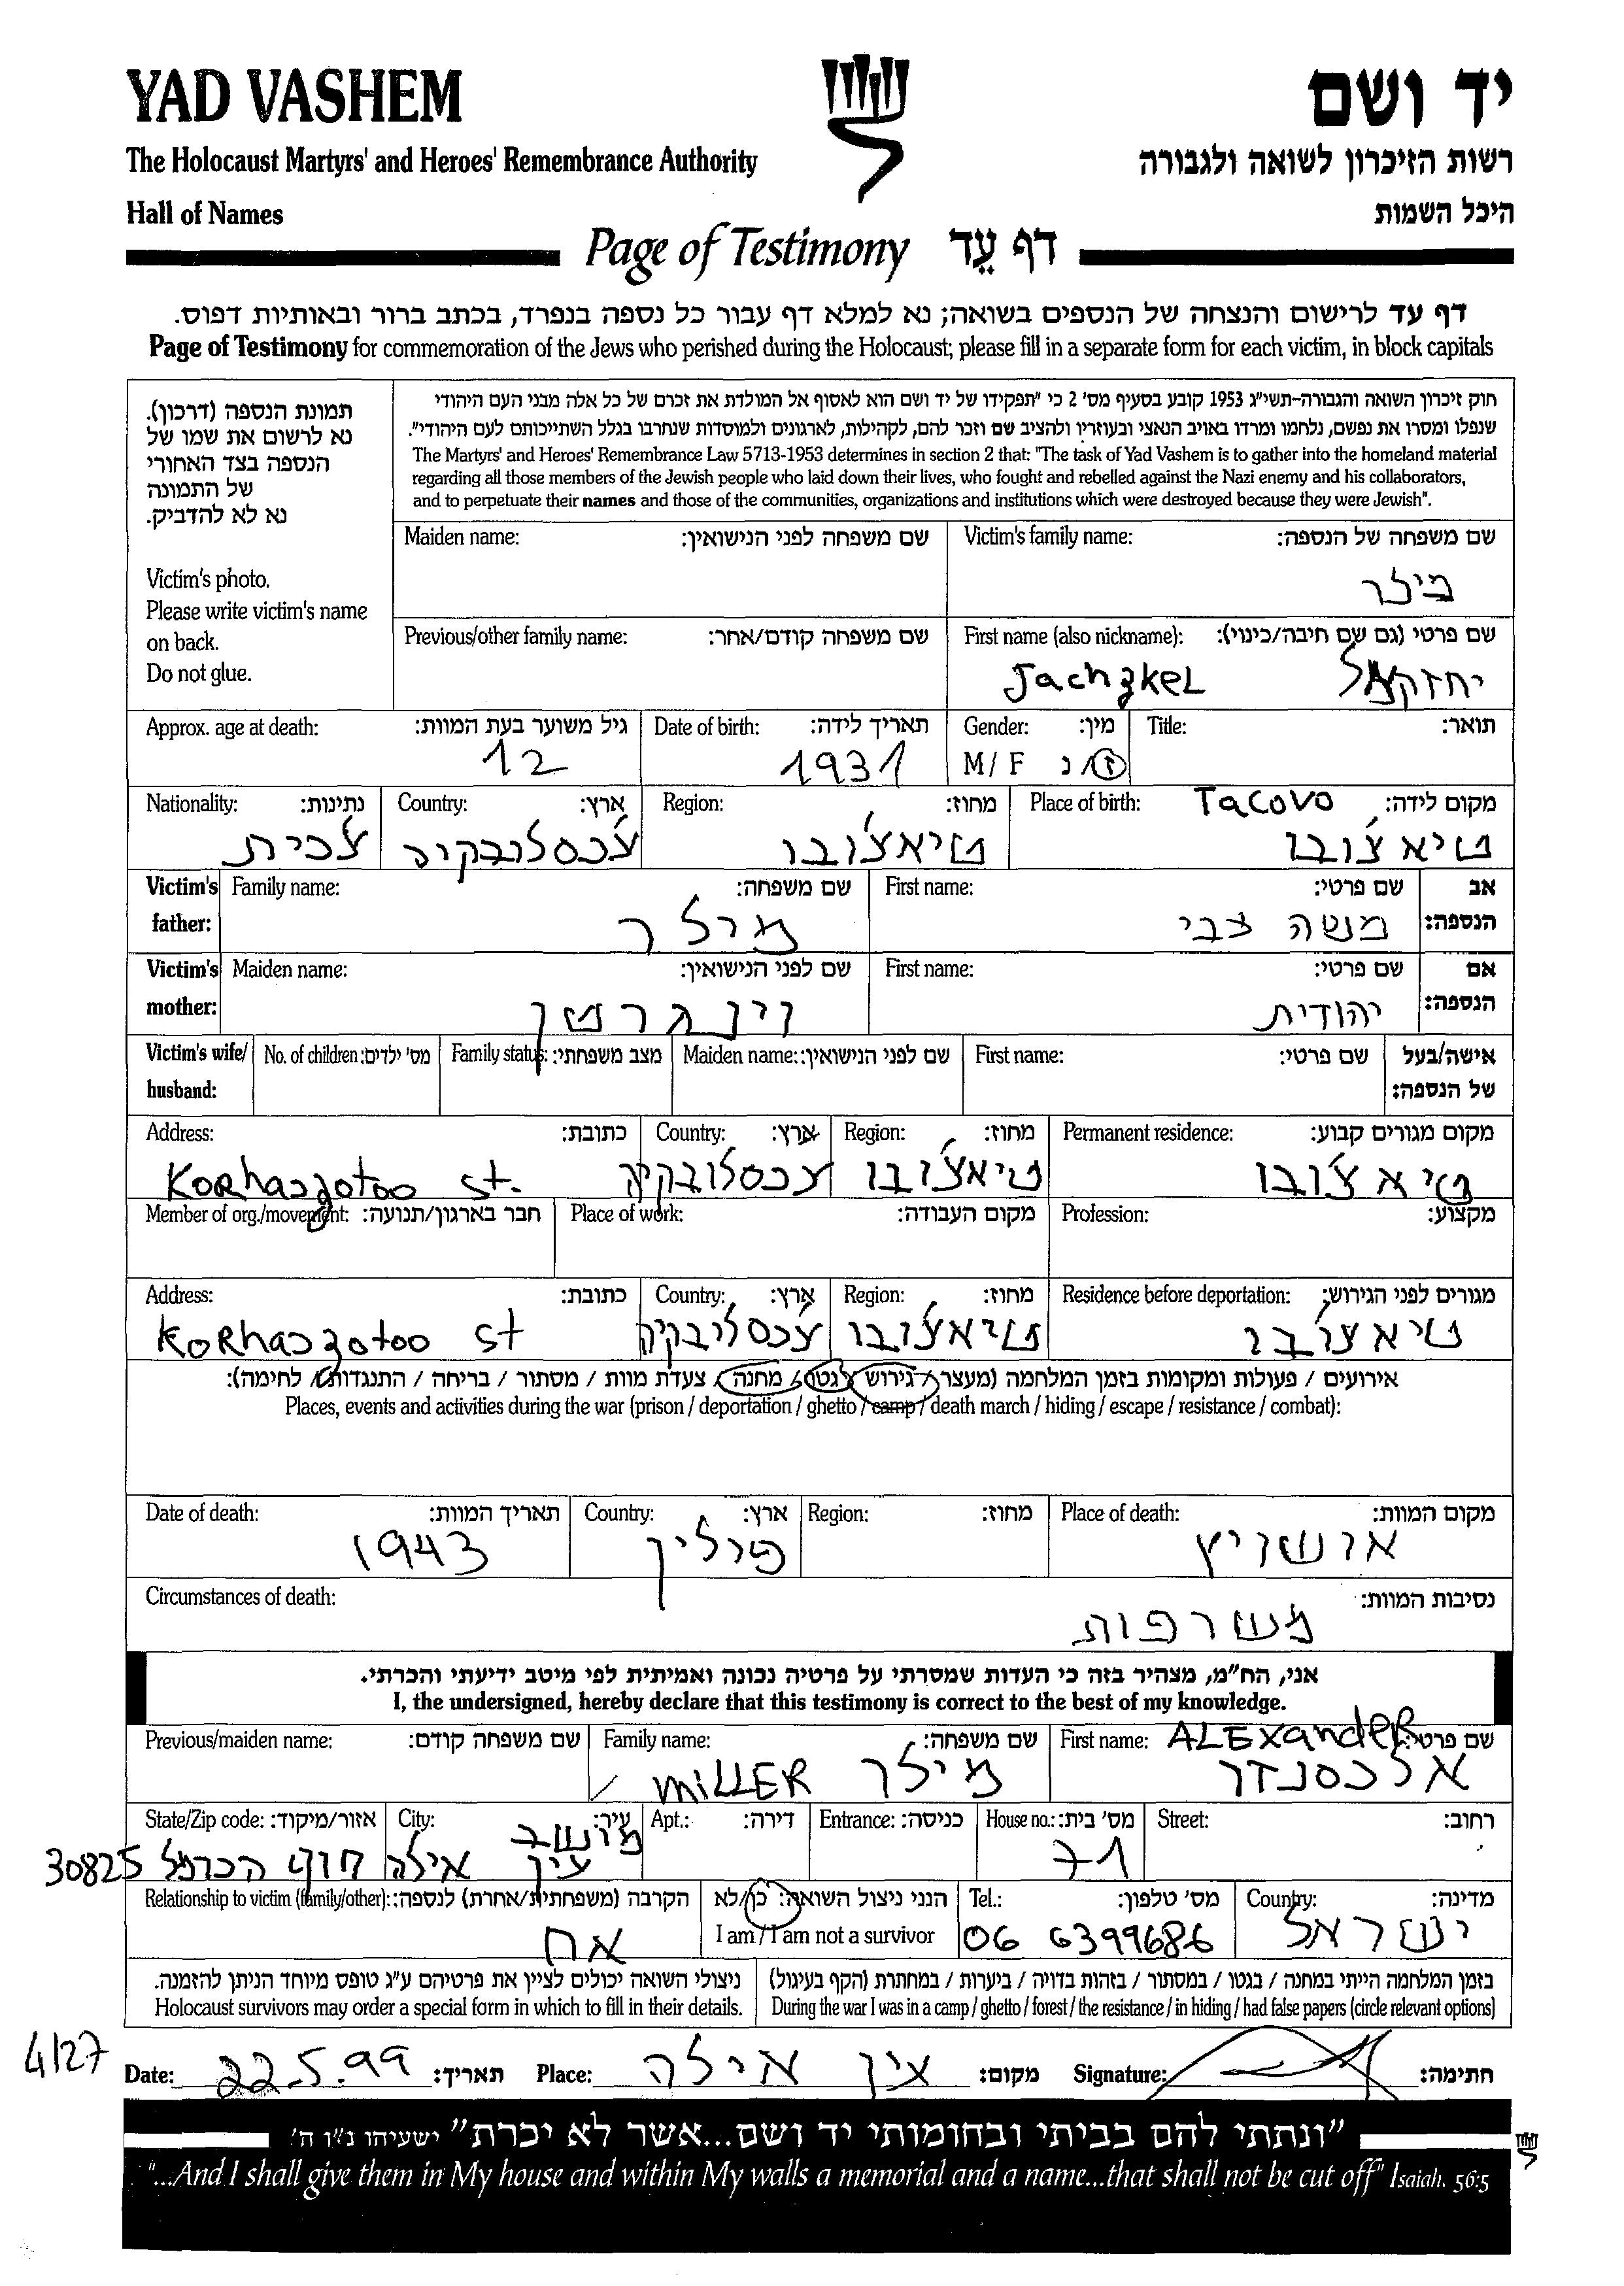 YAD VASHEM יד ושם
The Holocaust Martyrs' and Heroes' Remembrance Authority רשות הזיכרון לשואה ולגבורה
Hall of Names היכל השמות
Page of Testimony דף עֵד
דף עד לרישום והנצחה של הנספים בשואה; נא למלא דף עבור כל נספה בנפרד, בכתב ברור ובאותיות דפוס.
Page of Testimony for commemoration of the Jews who perished during the Holocaust; please fill in a separate form for each victim, in block capitals
חוק זיכרון השואה והגבורה-תשי"ג 1953 קובע בסעיף מס' 2 כי "תפקידו של יד ושם הוא לאסוף אל המולדת את זכרם של כל אלה מבני העם היהודי
שנפלו ומסרו את נפשם, נלחמו ומרדו באויב הנאצי ובעוזריו ולהציב שם וזכר להם, לקהילות, לארגונים ולמוסדות שנחרבו בגלל השתייכותם לעם היהודי".
The Martyrs' and Heroes' Remembrance Law 5713-1953 determines in section 2 that: "The task of Yad Vashem is to gather into the homeland material
regarding all those members of the Jewish people who laid down their lives, who fought and rebelled against the Nazi enemy and his collaborators,
and to perpetuate their names and those of the communities, organizations and institutions which were destroyed because they were Jewish".
תמונת הנספה (דרכון).
נא לרשום את שמו של
הנספה בצד האחורי
של התמונה
נא לא להדביק.
Victim's photo.
Please write victim's name
on back.
Do not glue.
Victim's family name: שם משפחה של הנספה: Maiden name: שם משפחה לפני הנישואין:
מילר
First name (also nickname): שם פרטי (גם שם חיבה/כינוי): Previous/other family name: שם משפחה קודם/אחר:
Jachzkel יחזקאל
Title: תואר: Gender: מין: Date of birth: תאריך לידה: Approx. age at death: גיל משוער בעת המוות:
M/ F ז/נ 1931 12
Place of birth: Tacovo מקום לידה: Region: מחוז: Country: ארץ: Nationality: נתינות:
טיאצ'ובו טיאצ'ובו צ'כסלובקיה צ'כית
Victim's אב הנספה: First name: שם פרטי: Family name: שם משפחה:
father: משה צבי מילר
Victim's אם הנספה: First name: שם פרטי: Maiden name: שם לפני הנישואין:
mother: יהודית וינגרטן
Victim's wife/ אישה/בעל First name: שם פרטי: Maiden name: שם לפני הנישואין: Family status: מצב משפחתי: No. of children: מס' ילדים:
husband: של הנספה:
Permanent residence: מקום מגורים קבוע: Region: מחוז: Country: ארץ: Address: כתובת:
טיאצ'ובו טיאצ'ובו צכסלובקיה Korhaszotoo st.
Profession: מקצוע: Place of work: מקום העבודה: Member of org./movement: חבר בארגון/תנועה:
Residence before deportation: מגורים לפני הגירוש: Region: מחוז: Country: ארץ: Address: כתובת:
טיאצ'ובו טיאצ'ובו צ'כסלובקיה Korhaszotoo st
אירועים / פעולות ומקומות בזמן המלחמה (מעצר / גירוש / גטו / מחנה / צעדת מוות / מסתור / בריחה / התנגדות / לחימה):
Places, events and activities during the war (prison / deportation / ghetto / camp / death march / hiding / escape / resistance / combat):
Place of death: מקום המוות: Region: מחוז: Country: ארץ: Date of death: תאריך המוות:
אושויץ פולין 1943
Circumstances of death: נסיבות המוות:
משרפות
אני, הח"מ, מצהיר בזה כי העדות שמסרתי על פרטיה נכונה ואמיתית לפי מיטב ידיעתי והכרתי.
I, the undersigned, hereby declare that this testimony is correct to the best of my knowledge.
First name: ALExandER שם פרטי: Family name: שם משפחה: Previous/maiden name: שם משפחה קודם:
אלכסנדר מילר MiLLER
Street: רחוב: House no.: מס' בית: Entrance: כניסה: Apt.: דירה: City: עיר: State/Zip code: אזור/מיקוד:
71 מושב עין אילה חוף הכרמל 30825
Country: מדינה: Tel.: מס' טלפון: הנני ניצול השואה: כן/לא Relationship to victim (family/other): הקרבה (משפחתית/אחרת) לנספה:
ישראל 06 6399686 I am / I am not a survivor אח
בזמן המלחמה הייתי במחנה / בגטו / במסתור / בזהות בדויה / ביערות / במחתרת (הקף בעיגול) ניצולי השואה יכולים לציין את פרטיהם ע"ג טופס מיוחד הניתן להזמנה.
During the war I was in a camp / ghetto / forest / the resistance / in hiding / had false papers (circle relevant options) Holocaust survivors may order a special form in which to fill in their details.
4/27
Date: 22.5.99 תאריך: Place: עין אילה מקום: Signature: חתימה:
"ונתתי להם בביתי ובחומותי יד ושם...אשר לא יכרת" ישעיהו נ"ו ה'
"...And I shall give them in My house and within My walls a memorial and a name...that shall not be cut off" Isaiah. 56:5